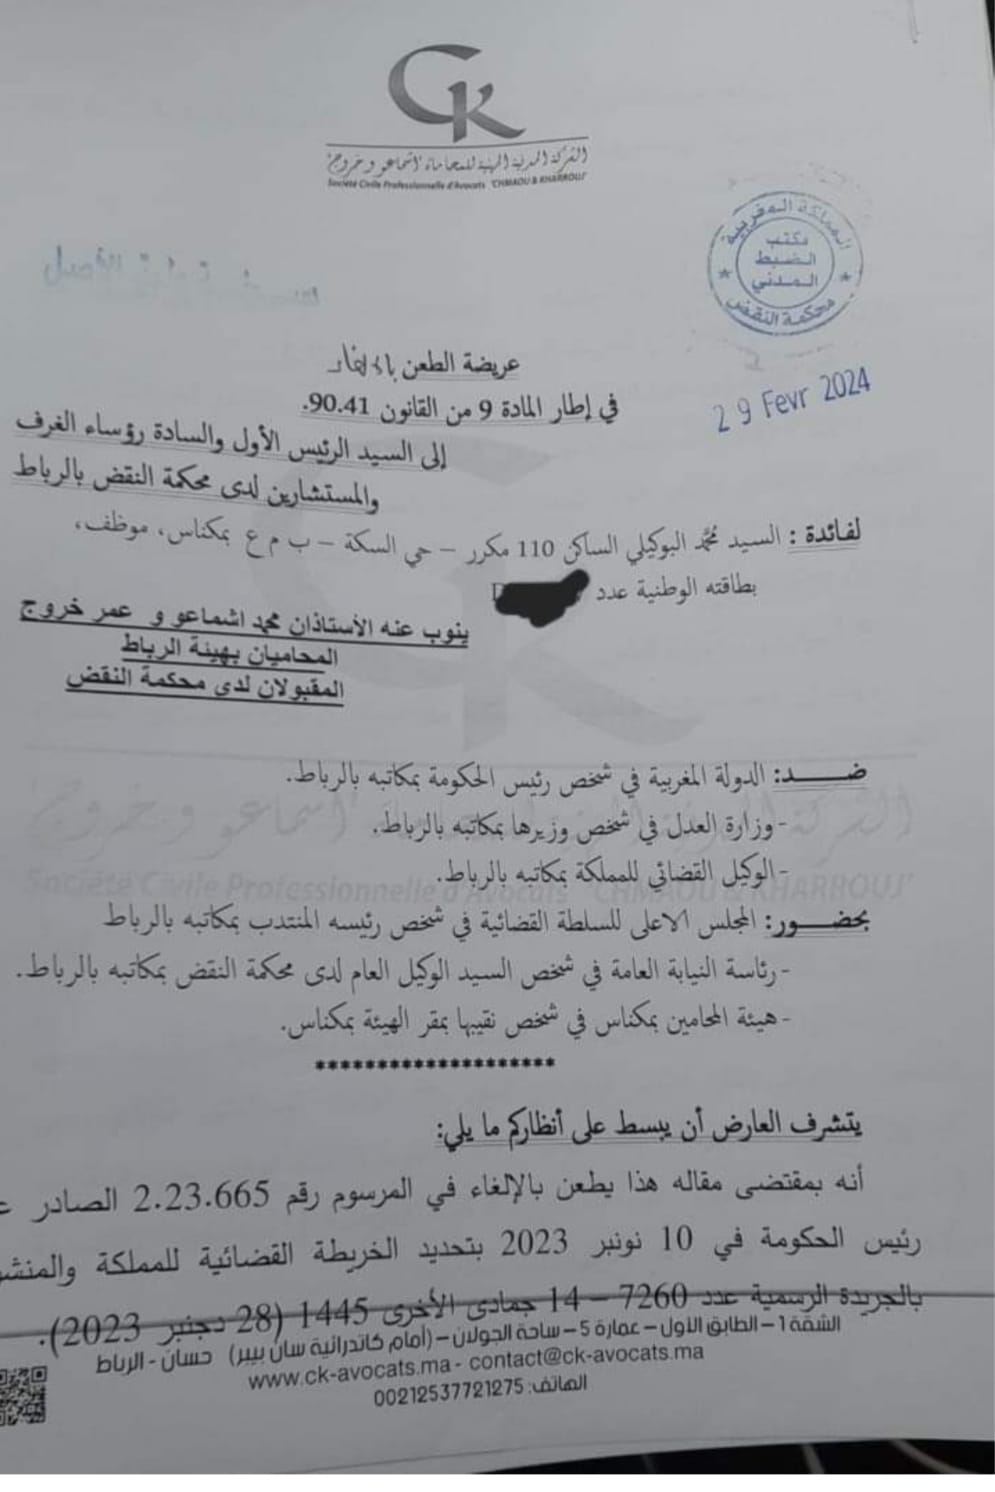 CK
الشركة المدنية المهنية للمحاماة "اشماعو و خروج"
Société Civile Professionnelle d'Avocats "CHMAOU & KHARROUJ"
المملكة المغربية
مكتب
الضبط
المدني
محكمة النقض
29 Fevr 2024
عريضة الطعن بالإلغاء
في إطار المادة 9 من القانون 90.41.
إلى السيد الرئيس الأول والسادة رؤساء الغرف
والمستشارين لدى محكمة النقض بالرباط
لفائدة : السيد محمد البوكيلي الساكن 110 مكرر – حي السكة – ب م ع بمكناس، موظف،
بطاقته الوطنية عدد
ينوب عنه الأستاذان محمد اشماعو و عمر خروج
المحاميان بهيئة الرباط
المقبولان لدى محكمة النقض
ضـــــد: الدولة المغربية في شخص رئيس الحكومة بمكاتبه بالرباط.
-وزارة العدل في شخص وزيرها بمكاتبه بالرباط.
-الوكيل القضائي للمملكة بمكاتبه بالرباط.
بحضـــور: المجلس الاعلى للسلطة القضائية في شخص رئيسه المنتدب بمكاتبه بالرباط
-رئاسة النيابة العامة في شخص السيد الوكيل العام لدى محكمة النقض بمكاتبه بالرباط.
-هيئة المحامين بمكناس في شخص نقيبها بمقر الهيئة بمكناس.
********************
يتشرف العارض أن يبسط على أنظاركم ما يلي:
أنه بمقتضى مقاله هذا يطعن بالإلغاء في المرسوم رقم 2.23.665 الصادر
رئيس الحكومة في 10 نونبر 2023 بتحديد الخريطة القضائية للمملكة
بالجريدة الرسمية عدد 7260 – 14 جمادى الأخرى 1445 (28 دجنبر 2023).
الشقة 1 – الطابق الأول – عمارة 5 – ساحة الجولان – (أمام كاتدرائية سان بيير) حسان - الرباط
www.ck-avocats.ma - contact@ck-avocats.ma
الهاتف: 00212537721275